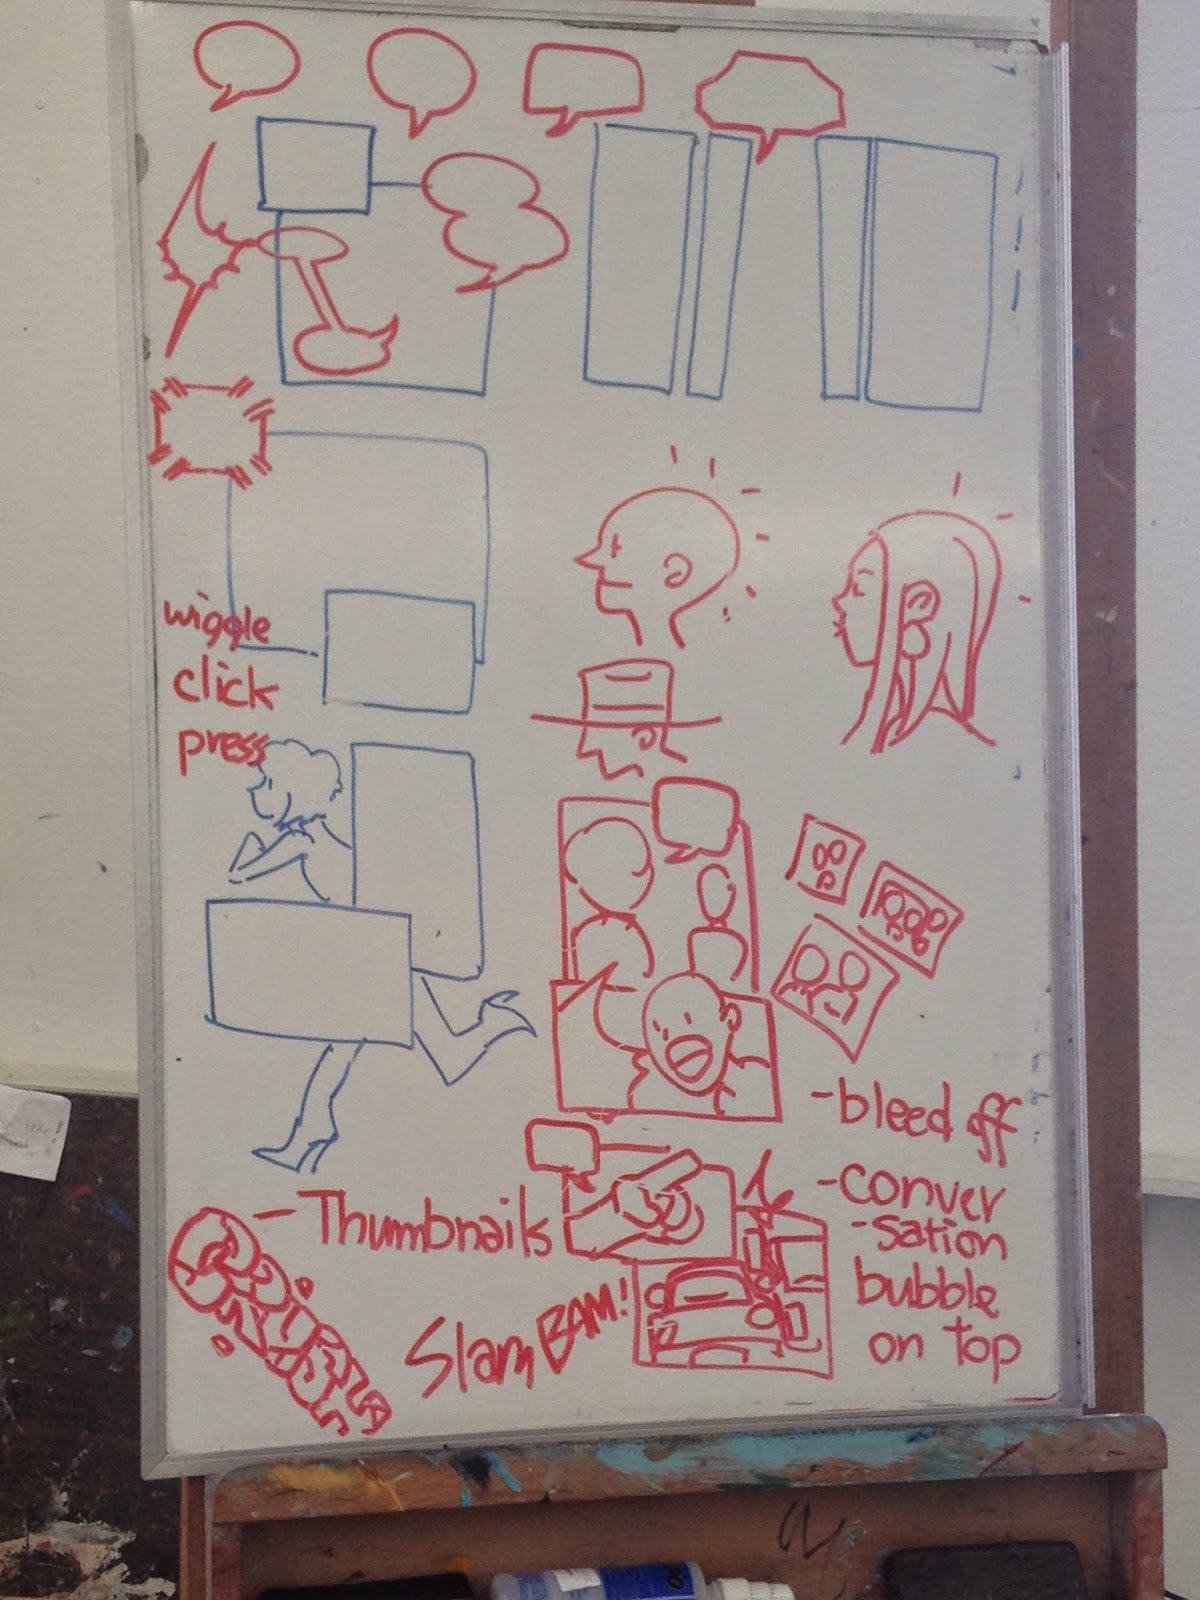 wiggle
click
press
- bleed off
- Thumbnails
- conver
- sation
bubble
on top
Slam BAM!